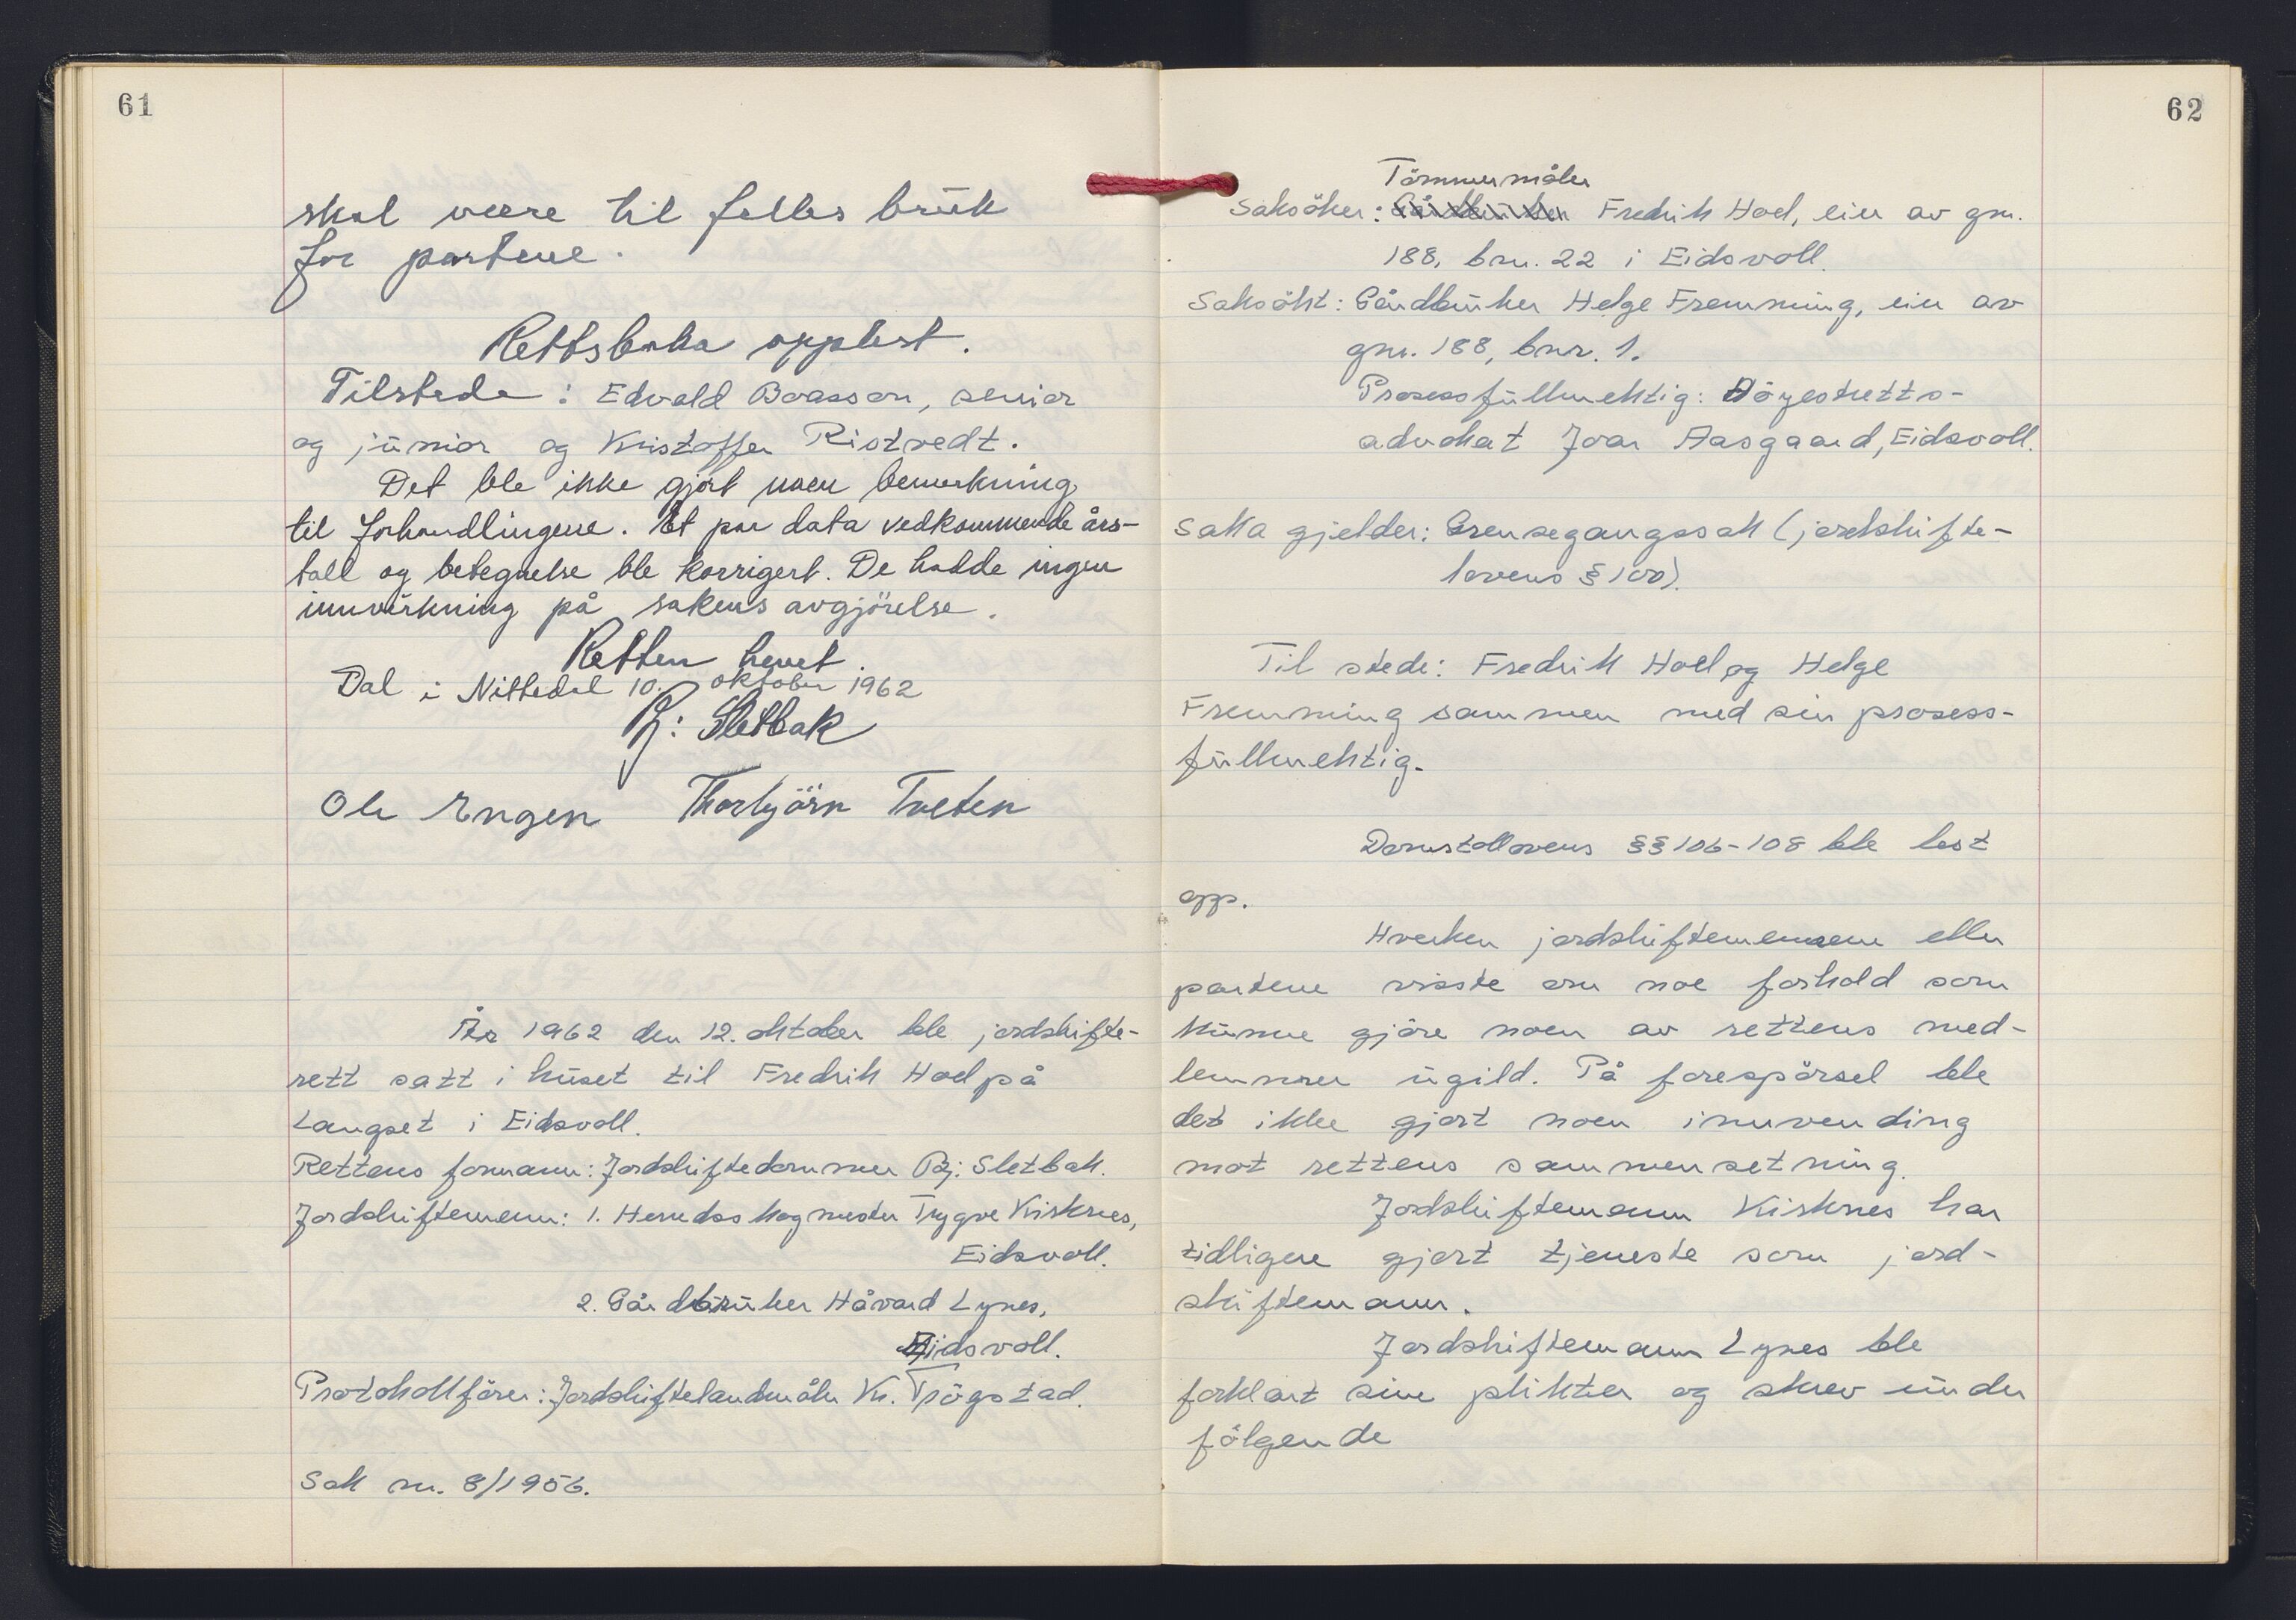 61
skal være til felles brük
for partene.
Rettsboka opplest.
Tilstede: Edvald Boasson, senior
og jünior og Kristoffer Ristvedt.
Det ble ikke gjort noen bemerkning
til forhandlingene. Et par data vedkommende års-
tall og betegnelse ble korrigert. De hadde ingen
innvirkning på sakens avgjörelse.
Retten hevet.
Dal i Nittedal 10. oktober 1962
Bj: Sletbak
Ole Engen Thorbjörn Tveten
År 1962 den 12. oktober ble jordskifte-
rett satt i hüset til Fredrik Hoel på
Langset i Eidsvoll.
Rettens formann: Jordskiftedommer Bj: Sletbak.
Jordskiftemenn: 1. Herredsskogmester Trygve Kirknes,
Eidsvoll.
2. Gårdbrüker Håvard Lynes,
Eidsvoll.
Protokollförer: Jordskiftelandmåler Kr. Trögstad.
Sak nr. 8/1956.
62
Tömmermåler
Saksöker: Gårdbrüker Fredrik Hoel, eier av gnr.
188, bnr. 22 i Eidsvoll.
Saksökt: Gårdbrüker Helge Fremming, eier av
gnr. 188, bnr. 1.
Prosessfüllmektig: Höyestretts-
advokat Joar Aasgaard, Eidsvoll.
Saka gjelder: Grensegangssak (jordskifte-
lovens § 100).
Til stede: Fredrik Hoel og Helge
Fremming sammen med sin prosess-
füllmektig.
Domstollovens §§ 106-108 ble lest
opp.
Hverken jordskiftemennene eller
partene visste om noe forhold som
künne gjöre noen av rettens med-
lemmer ügild. På forespörsel ble
det ikke gjort noen innvending
mot rettens sammensetning.
Jordskiftemann Kirknes har
tidligere gjort tjeneste som jord-
skiftemann.
Jordskiftemann Lynes ble
forklart sine plikter og skrev ünder
fölgende